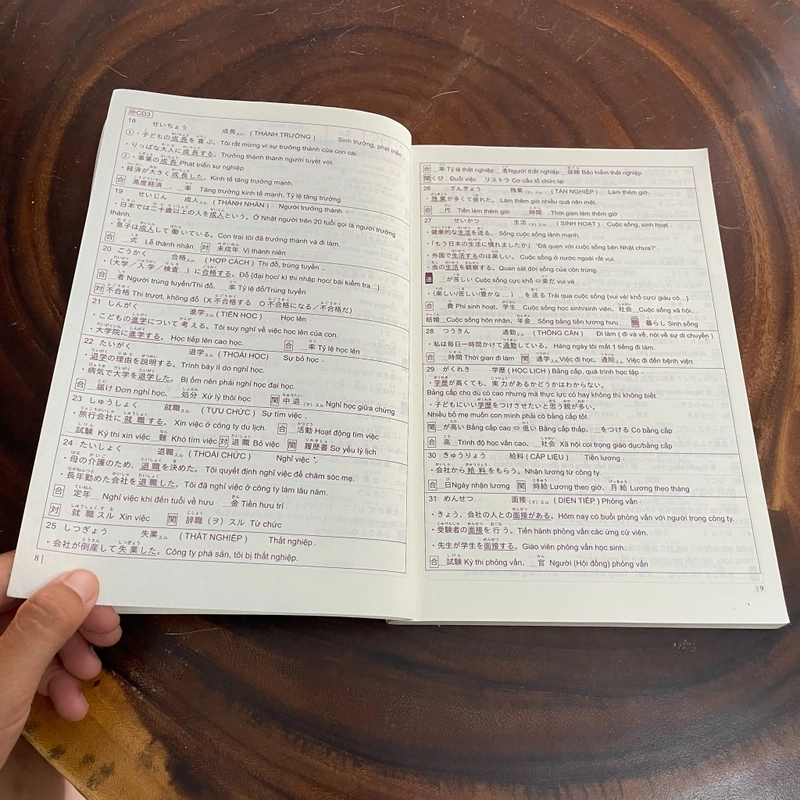 CD3
18 せいちょう 成長スル (THÀNH TRƯỞNG) Sinh trưởng, phát triển
①・子どもの成長を喜ぶ。Tôi rất mừng vì sự trưởng thành của con cái.
・りっぱな大人に成長する。Trưởng thành thành người tuyệt vời.
②・事業の成長 Phát triển sự nghiệp
・経済が大きく成長した。Kinh tế tăng trưởng mạnh.
合 高度経済__、__率 Tăng trưởng kinh tế mạnh, Tỷ lệ tăng trưởng
19 せいじん 成人スル (THÀNH NHÂN) Người trưởng thành
・日本では二十歳以上の人を成人という。Ở Nhật người trên 20 tuổi gọi là người trưởng
thành.
・息子は成人して働いている。Con trai tôi đã trưởng thành và đi làm.
合 __式 Lễ thành nhân 対 未成年 Vị thành niên
20 ごうかく 合格スル (HỢP CÁCH) Thi đỗ, trúng tuyển
・(大学/入学/検査...) に合格する。Đỗ (đại học/ kì thi nhập học/ bài kiểm tra...)
合 __者 Người trúng tuyển/Thi đỗ, __率 Tỷ lệ đỗ/Trúng tuyển
対 不合格 Thi trượt, không đỗ (X 不合格する O 不合格になる/不合格だ)
21 しんがく 進学スル (TIẾN HỌC) Học lên
・こどもの進学について考える。Tôi suy nghĩ về việc học lên của con.
・大学院に進学する。Học tiếp lên cao học. 合 __率 Tỷ lệ học lên
22 たいがく 退学スル (THOÁI HỌC) Sự bỏ học
・退学の理由を説明する。Trình bày lí do nghỉ học.
・病気で大学を退学した。Bị ốm nên phải nghỉ học đại học.
合 __届け Đơn nghỉ học, __処分 Xử lý thôi học 関 中退(ヲ)スル Nghỉ học giữa chừng
23 しゅうしょく 就職スル (TỰU CHỨC) Sự tìm việc
・旅行会社に就職する。Xin việc ở công ty du lịch. 合 __活動 Hoạt động tìm việc
__試験 Kỳ thi xin việc __難 Khó tìm việc 対 退職 Bỏ việc 関 履歴書 Sơ yếu lý lịch
24 たいしょく 退職スル (THOÁI CHỨC) Nghỉ việc
・母の介護のため、退職を決めた。Tôi quyết định nghỉ việc để chăm sóc mẹ.
・長年勤めた会社を退職した。Tôi đã nghỉ việc ở công ty làm lâu năm.
合 定年__ Nghỉ việc khi đến tuổi về hưu __金 Tiền hưu trí
対 就職スル Xin việc 関 辞職(ヲ)スル Từ chức
25 しつぎょう 失業スル (THẤT NGHIỆP) Thất nghiệp
・会社が倒産して失業した。Công ty phá sản, tôi bị thất nghiệp.
8
合 __率 Tỷ lệ thất nghiệp __者 Người thất nghiệp __保険 Bảo hiểm thất nghiệp
関 くび Đuổi việc リストラ Cơ cấu tổ chức lại
26 ざんぎょう 残業(ヲ)スル (TÀN NGHIỆP) Làm thêm giờ.
・残業が多くて疲れた。Làm thêm giờ nhiều quá nên mệt.
合 __代 Tiền làm thêm giờ, __時間 Thời gian làm thêm giờ
27 せいかつ 生活スル (SINH HOẠT) Cuộc sống, sinh hoạt
・健康的な生活を送る。Sống cuộc sống lành mạnh.
・「もう日本の生活に慣れましたか」 “Đã quen với cuộc sống bên Nhật chưa?”
・外国で生活するのは楽しい。Cuộc sống ở nước ngoài rất vui.
・虫の生活を観察する。Quan sát đời sống của côn trùng.
連 __が苦しい Cuộc sống cực khổ ⇔ 楽だ vui vẻ
・(楽しい/苦しい/豊かな...) __を送る Trải qua cuộc sống (vui vẻ/ khổ cực/ giàu có...)
合 __費 Phí sinh hoạt, 学生__ Cuộc sống học sinh/sinh viên, 社会__ Cuộc sống xã hội,
結婚__ Cuộc sống hôn nhân, 年金__ Sống bằng tiền lương hưu 類 暮らし Sinh sống
28 つうきん 通勤スル (THÔNG CẦN) Đi làm (đi và về, nói về sự di chuyển)
・私は毎日一時間かけて通勤している。Hàng ngày tôi mất 1 tiếng đi làm.
合 __時間 Thời gian đi làm 関 通学スル Việc đi học、通院スル Việc đi đến bệnh viện
29 がくれき 学歴 (HỌC LỊCH) Bằng cấp, quá trình học tập
・学歴が高くても、実力があるかどうかはわからない。
Bằng cấp cho dù có cao nhưng mà thực lực có hay không thì không biết.
・子どもにいい学歴をつけさせたいと思う親が多い。
Nhiều bố mẹ muốn con mình phải có bằng cấp tốt.
関 __が高い Bằng cấp cao ⇔ 低い Bằng cấp thấp. __をつける Có bằng cấp
合 高__ Trình độ học vấn cao. __社会 Xã hội coi trọng giáo dục/bằng cấp
30 きゅうりょう 給料 (CẤP LIỆU) Tiền lương
・会社から給料をもらう。Nhận lương từ công ty.
合 __日 Ngày nhận lương 関 時給 Lương theo giờ、月給 Lương theo tháng
31 めんせつ 面接スル (DIỆN TIẾP) Phỏng vấn
・きょう、会社の人との面接がある。Hôm nay có buổi phỏng vấn với người trong công ty.
・受験者の面接を行う。Tiến hành phỏng vấn các ứng cử viên.
・先生が学生を面接する。Giáo viên phỏng vấn học sinh.
合 __試験 Kỳ thi phỏng vấn、__官 Người (Hội đồng) phỏng vấn
9